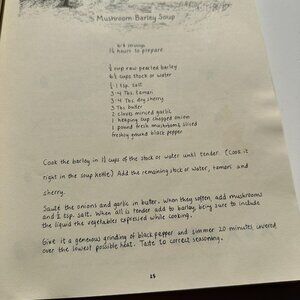 Mushroom Barley Soup
6-8 servings
1½ hours to prepare
½ cup raw pearled barley
6½ cups stock or water
½-1 tsp. salt
3-4 Tbs. tamari
3-4 Tbs. dry sherry
3 Tbs. butter
2 cloves minced garlic
1 heaping cup chopped onion
1 pound fresh mushrooms, sliced
freshly ground black pepper
Cook the barley in 1½ cups of the stock or water until tender. (Cook it
right in the soup kettle) Add the remaining stock or water, tamari and
sherry.
Sauté the onions and garlic in butter. When they soften, add mushrooms
and ½ tsp. salt. When all is tender add to barley, being sure to include
the liquid the vegetables expressed while cooking.
Give it a generous grinding of black pepper and simmer 20 minutes, covered
over the lowest possible heat. Taste to correct seasoning.
15